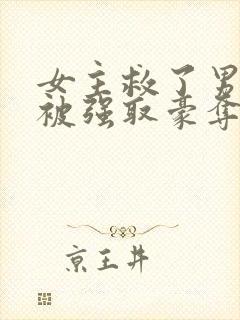 女主救了男
被强取豪夺
京王井